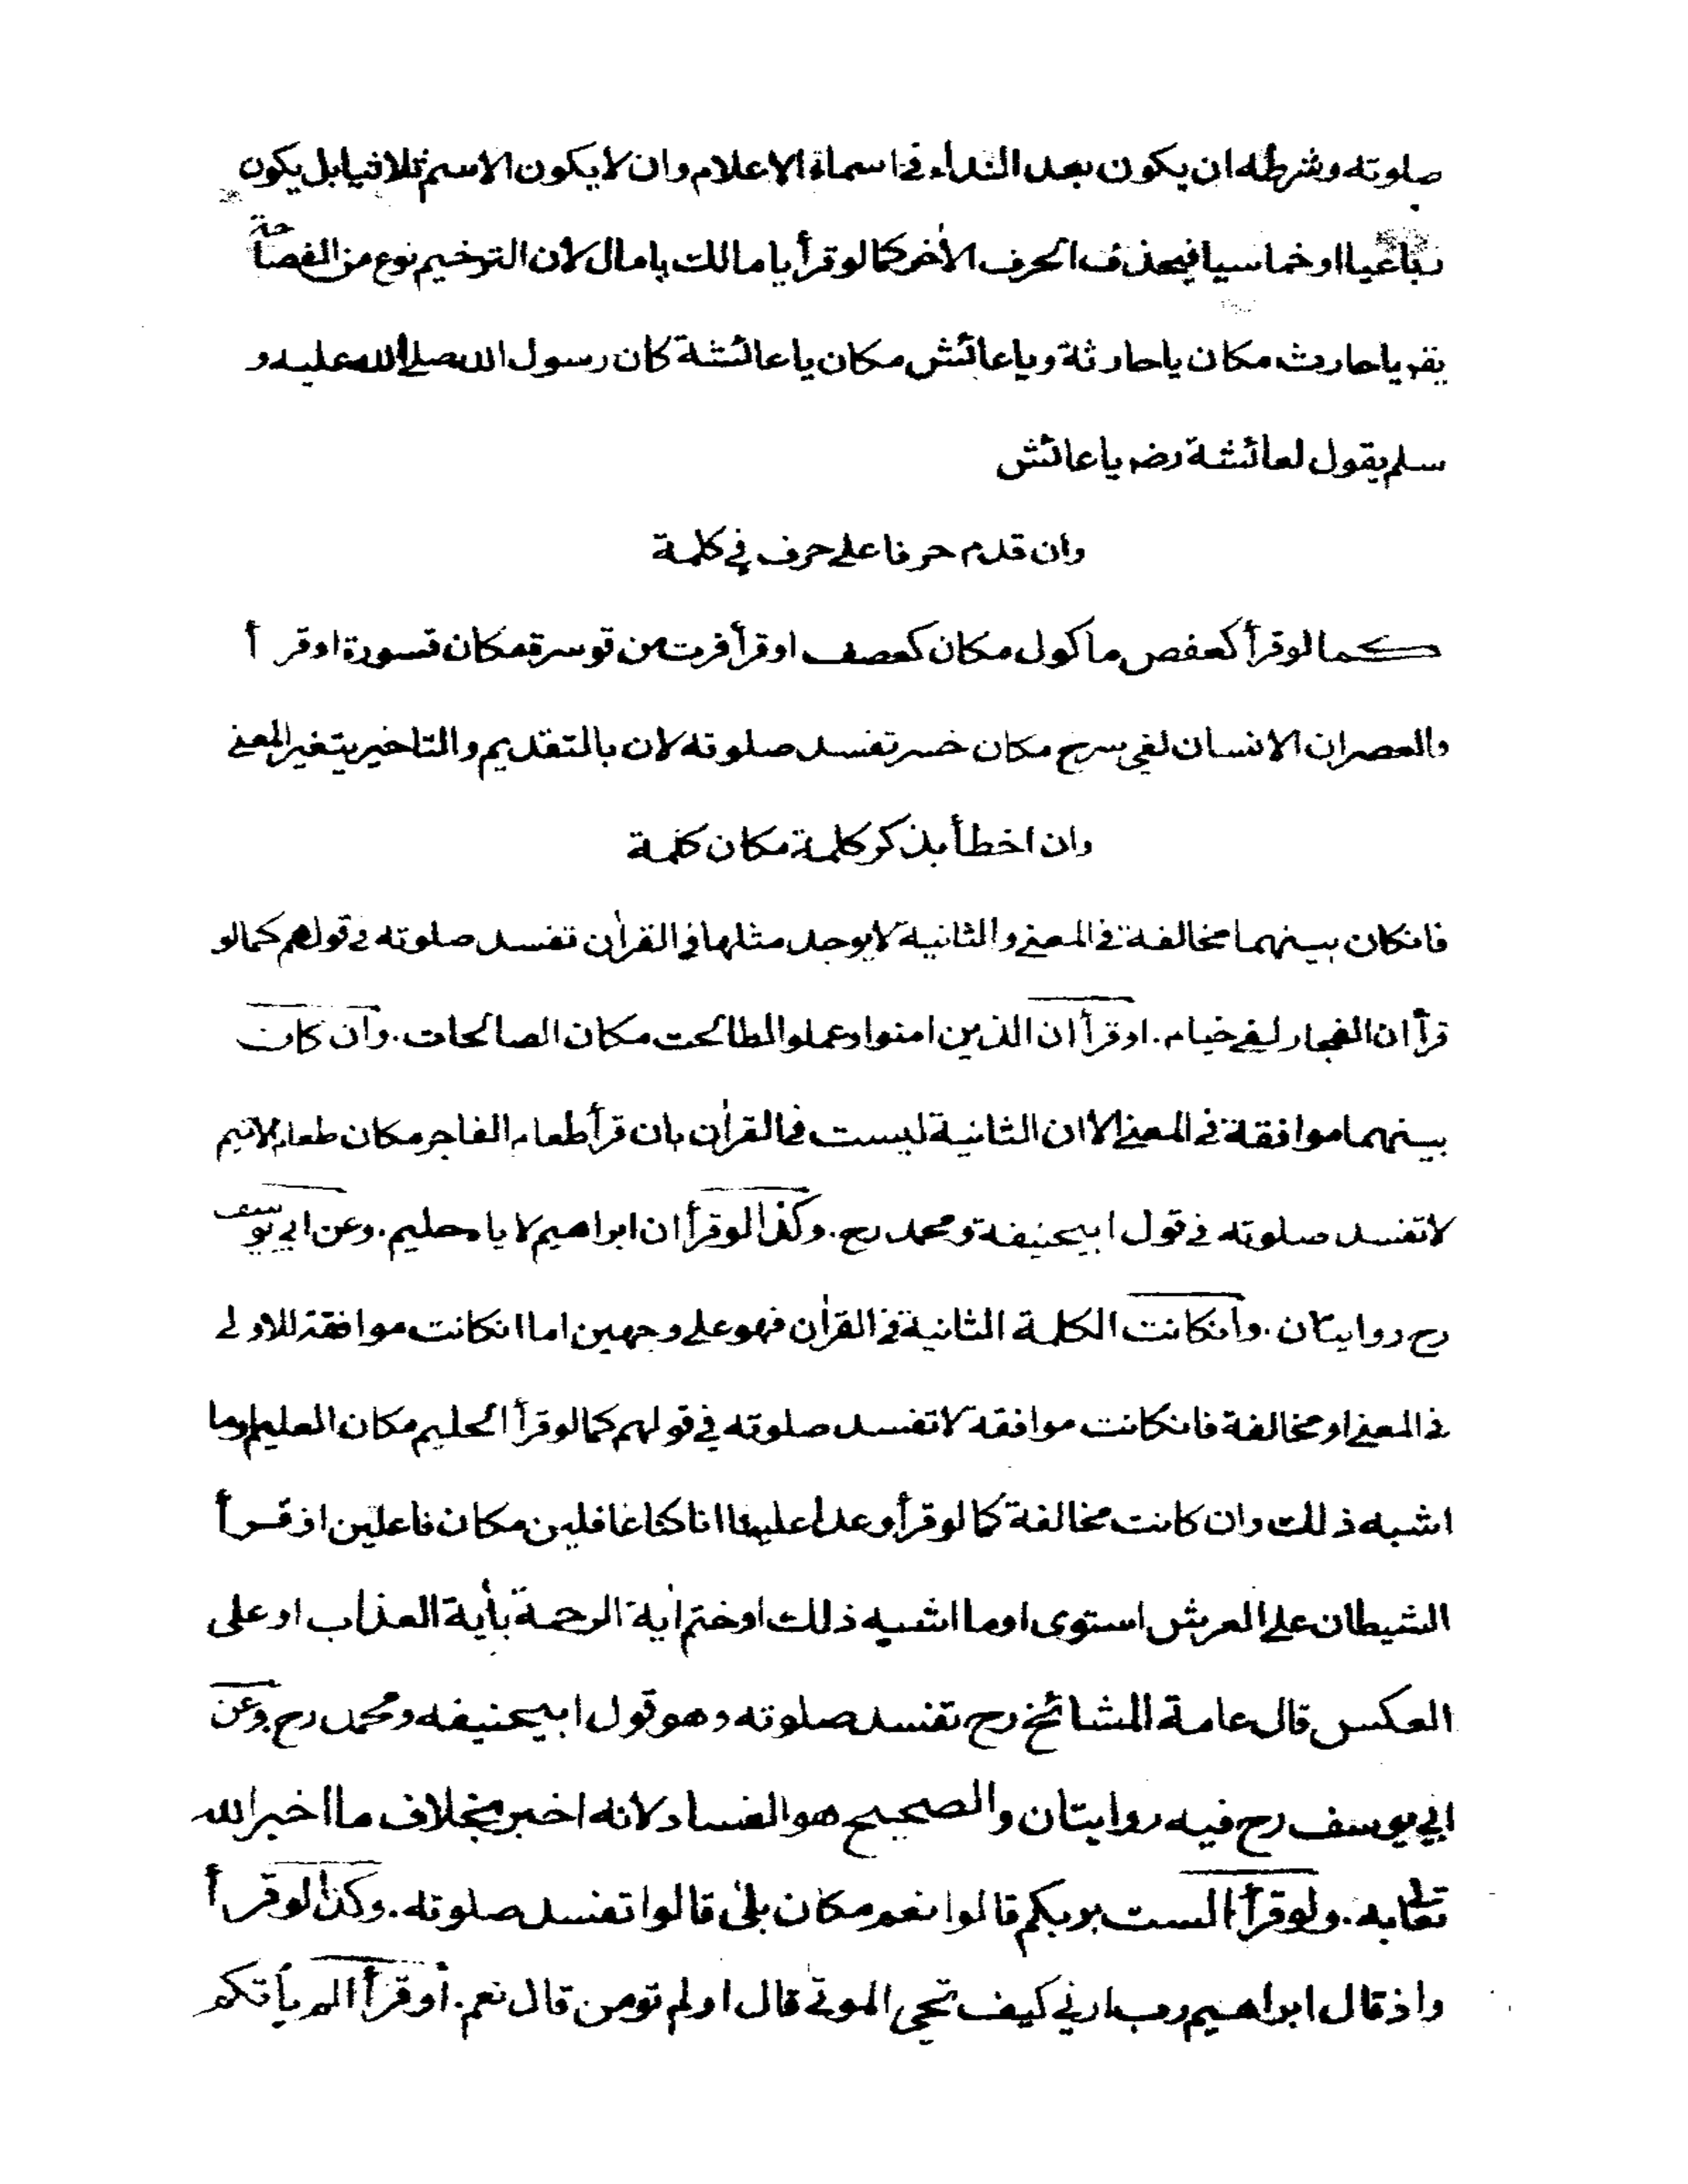 صلوته وشرطه ان يكون بعد النداء في اسماء الاعلام وان لا يكون الاسم ثلاثيا بل يكون
رباعيا او خماسيا فيحذف الحرف الاخر كما لو قرأ يا مالك يا مال لان الترخيم نوع من الفصاحة
يقم ياحارث مكان ياحارثة وياعائش مكان ياعائشة كان رسول الله صلى الله عليه و
سلم يقول لعائشة رضہ ياعائش
وان قدم حرفا على حرف في كلمة
كما لو قرأ كعفص ماكول مكان كعصف او قرأ فرت من قوسرة مكان قسورة او قرأ
والعصر ان الانسان لفي سرخ مكان خسر تفسد صلوته لان بالتقديم والتاخير يتغير المعنى
وان اخطأ بذكر كلمة مكان كلمة
فانكان بينهما مخالفة في المعنى والثانية لا يوجد مثلها في القرآن تفسد صلوته في قولهم كما لو
قرأ ان الفجار لفي خيام. او قرأ ان الذين امنوا وعملوا الطالحت مكان الصالحات. وان كان
بينهما موافقة في المعنى الا ان الثانية ليست في القرآن بان قرأ طعام الفاجر مكان طعام الاثيم
لا تفسد صلوته في قول ابيحنيفة ومحمد رح. وكذا لو قرأ ان ابراهيم لاياه حليم. وعن ابي يوسف
رح روايتان. وانكانت الكلمة الثانية في القرآن فهو على وجهين اما انكانت موافقة للاولى
في المعنى او مخالفة فانكانت موافقة لا تفسد صلوته في قولهم كما لو قرأ الحليم مكان العليم او ما
اشبه ذلك وان كانت مخالفة كما لو قرأ وعدا علينا انا كنا غافلين مكان فاعلين او قرأ
الشيطان على العرش استوى او ما اشبه ذلك او ختم اية الرحمة بأية العذاب او على
العكس قال عامة المشائخ رح تفسد صلوته وهو قول ابيحنيفه ومحمد رح. وعن
ابي يوسف رح فيه روايتان والصحيح هو الفساد لانه اخبر بخلاف ما اخبر الله
تعالى به. ولو قرأ الست بربكم قالوا نعم مكان بلى قالوا تفسد صلوته. وكذا لو قرأ
واذ قال ابراهيم رب ارني كيف تحي الموتى قال اولم تومن قال نعم. أو قرأ الم يأتكم